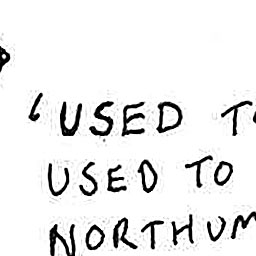 'USED TO
USED TO
NORTHUM